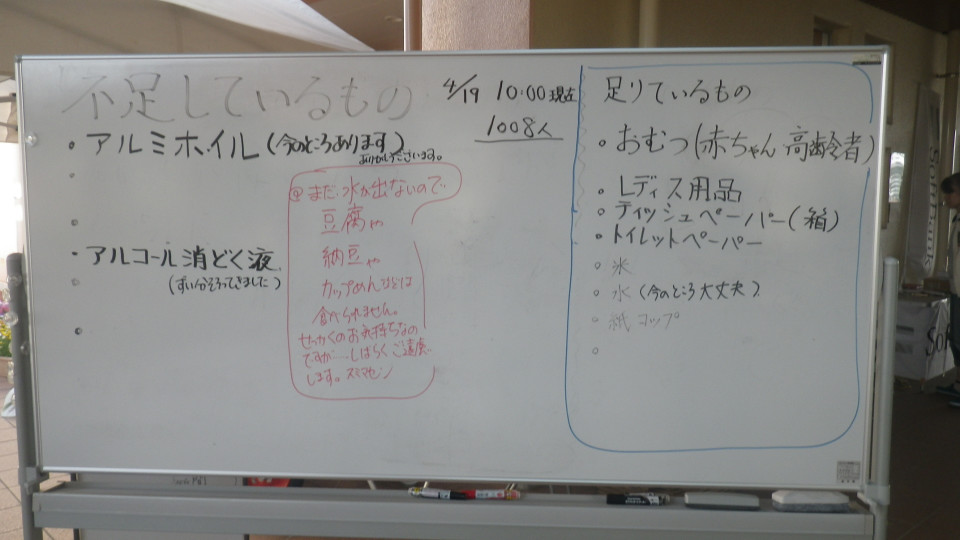 不足しているもの
4/19 10:00現在
1008人
・アルミホイル(今のところあります)
ありがとうございます。
・アルコール消どく液
(ずい分そろってきました)
@まだ水が出ないので
豆腐や
納豆や
カップめんなどは
食べられません。
せっかくのお気持ちなの
ですが…しばらくご遠慮
します。スミマセン
足りているもの
・おむつ(赤ちゃん 高齢者)
・レディス用品
・ティッシュペーパー(箱)
・トイレットペーパー
・米
・水(今のところ大丈夫)
・紙コップ
SoftBank